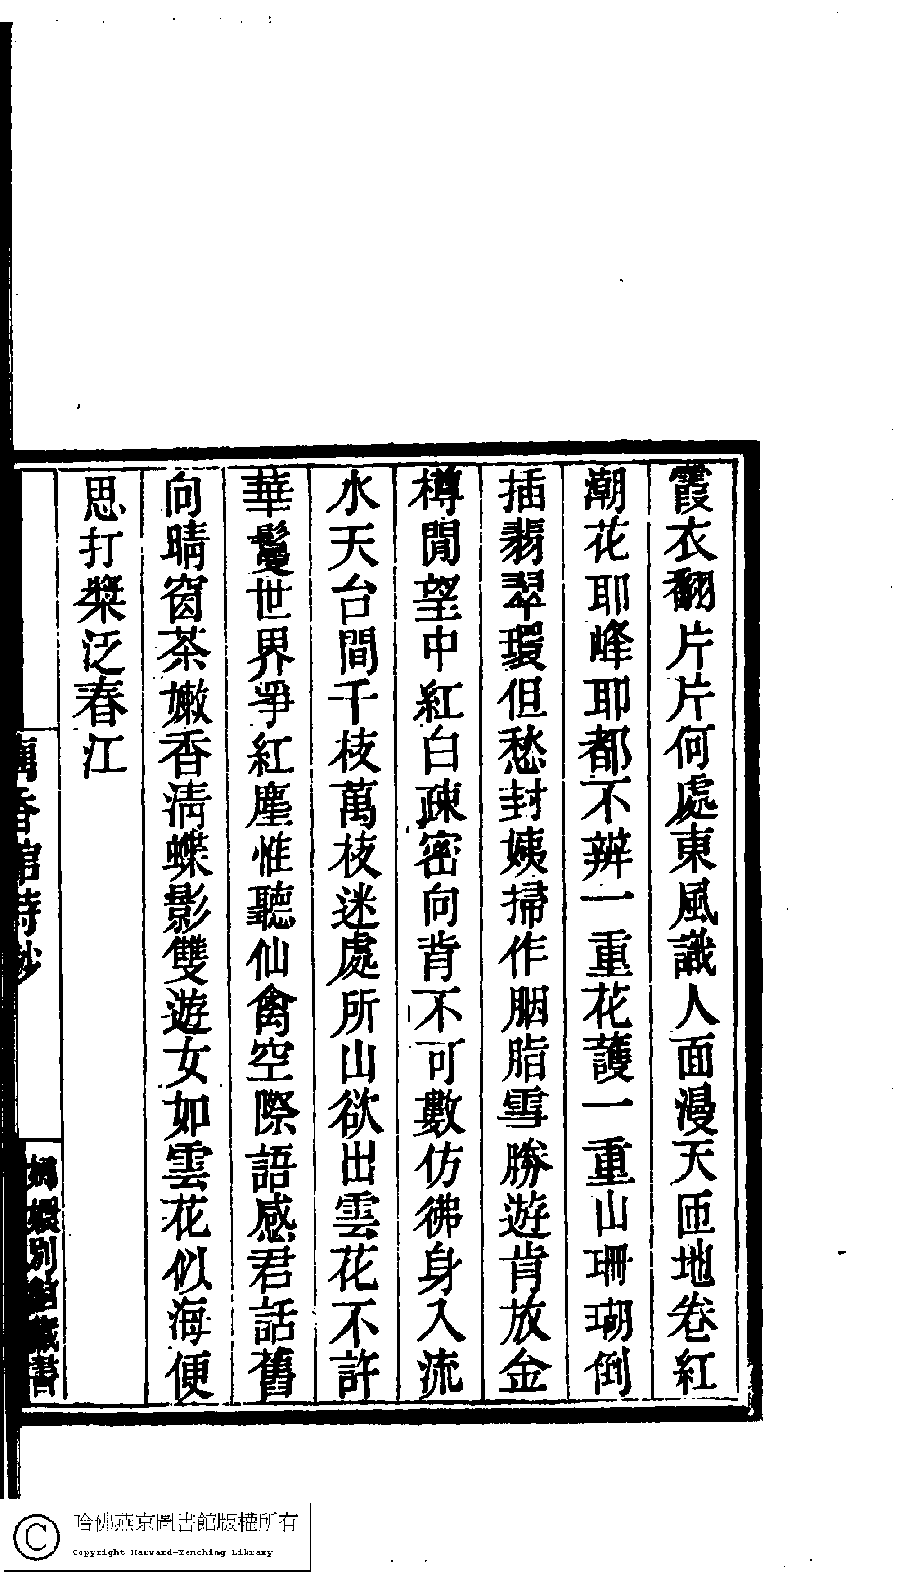 霞衣翻片片何處東風識人面漫天匝地卷紅
潮花耶峰耶都不辨一重花護一重山珊瑚倒
插翡翠環但愁封姨掃作胭脂雪勝遊肯放金
樽閒望中紅白疎密向背不可數仿彿身入流
水天台間千枝萬枝迷處所山欲出雲花不許
華鬘世界爭紅塵惟聽仙禽空際語感君話舊
向晴窗茶嫩香淸蝶影雙遊女如雲花似海便
思打槳泛春江
香館詩鈔
嬛別館藏書
哈佛燕京圖書館版權所有
Copyright Harvard-Yenching Library